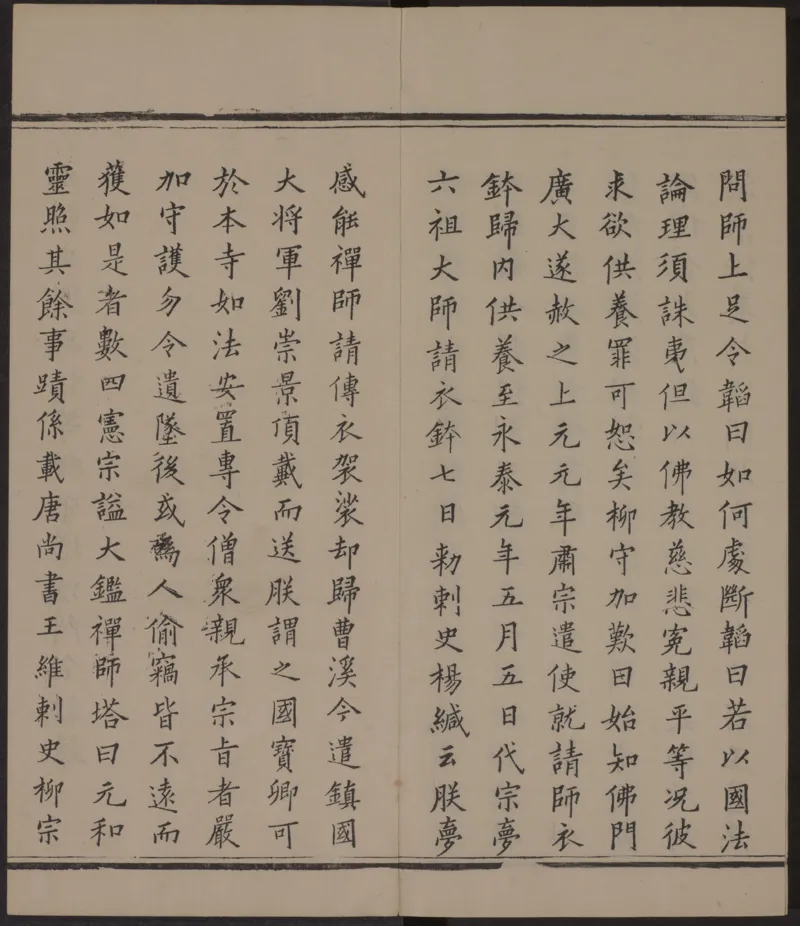 問師上足令韜曰如何處斷韜曰若以國法
論理須誅夷但以佛教慈悲寃親平等况彼
求欲供養罪可恕矣柳守加歎曰始知佛門
廣大遂赦之上元元年肅宗遣使就請師衣
鉢歸内供養至永泰元年五月五日代宗夢
六祖大師請衣鉢七日勑刺史楊緘云朕夢
感能禪師請傳衣袈裟却歸曹溪今遣鎮國
大将軍劉崇景頂戴而送朕謂之國寶卿可
於本寺如法安置專令僧衆親承宗旨者嚴
加守護勿令遺墜後或為人偷竊皆不遠而
獲如是者數四憲宗謚大鑑禪師塔曰元和
靈照其餘事蹟係載唐尚書王維刺史柳宗